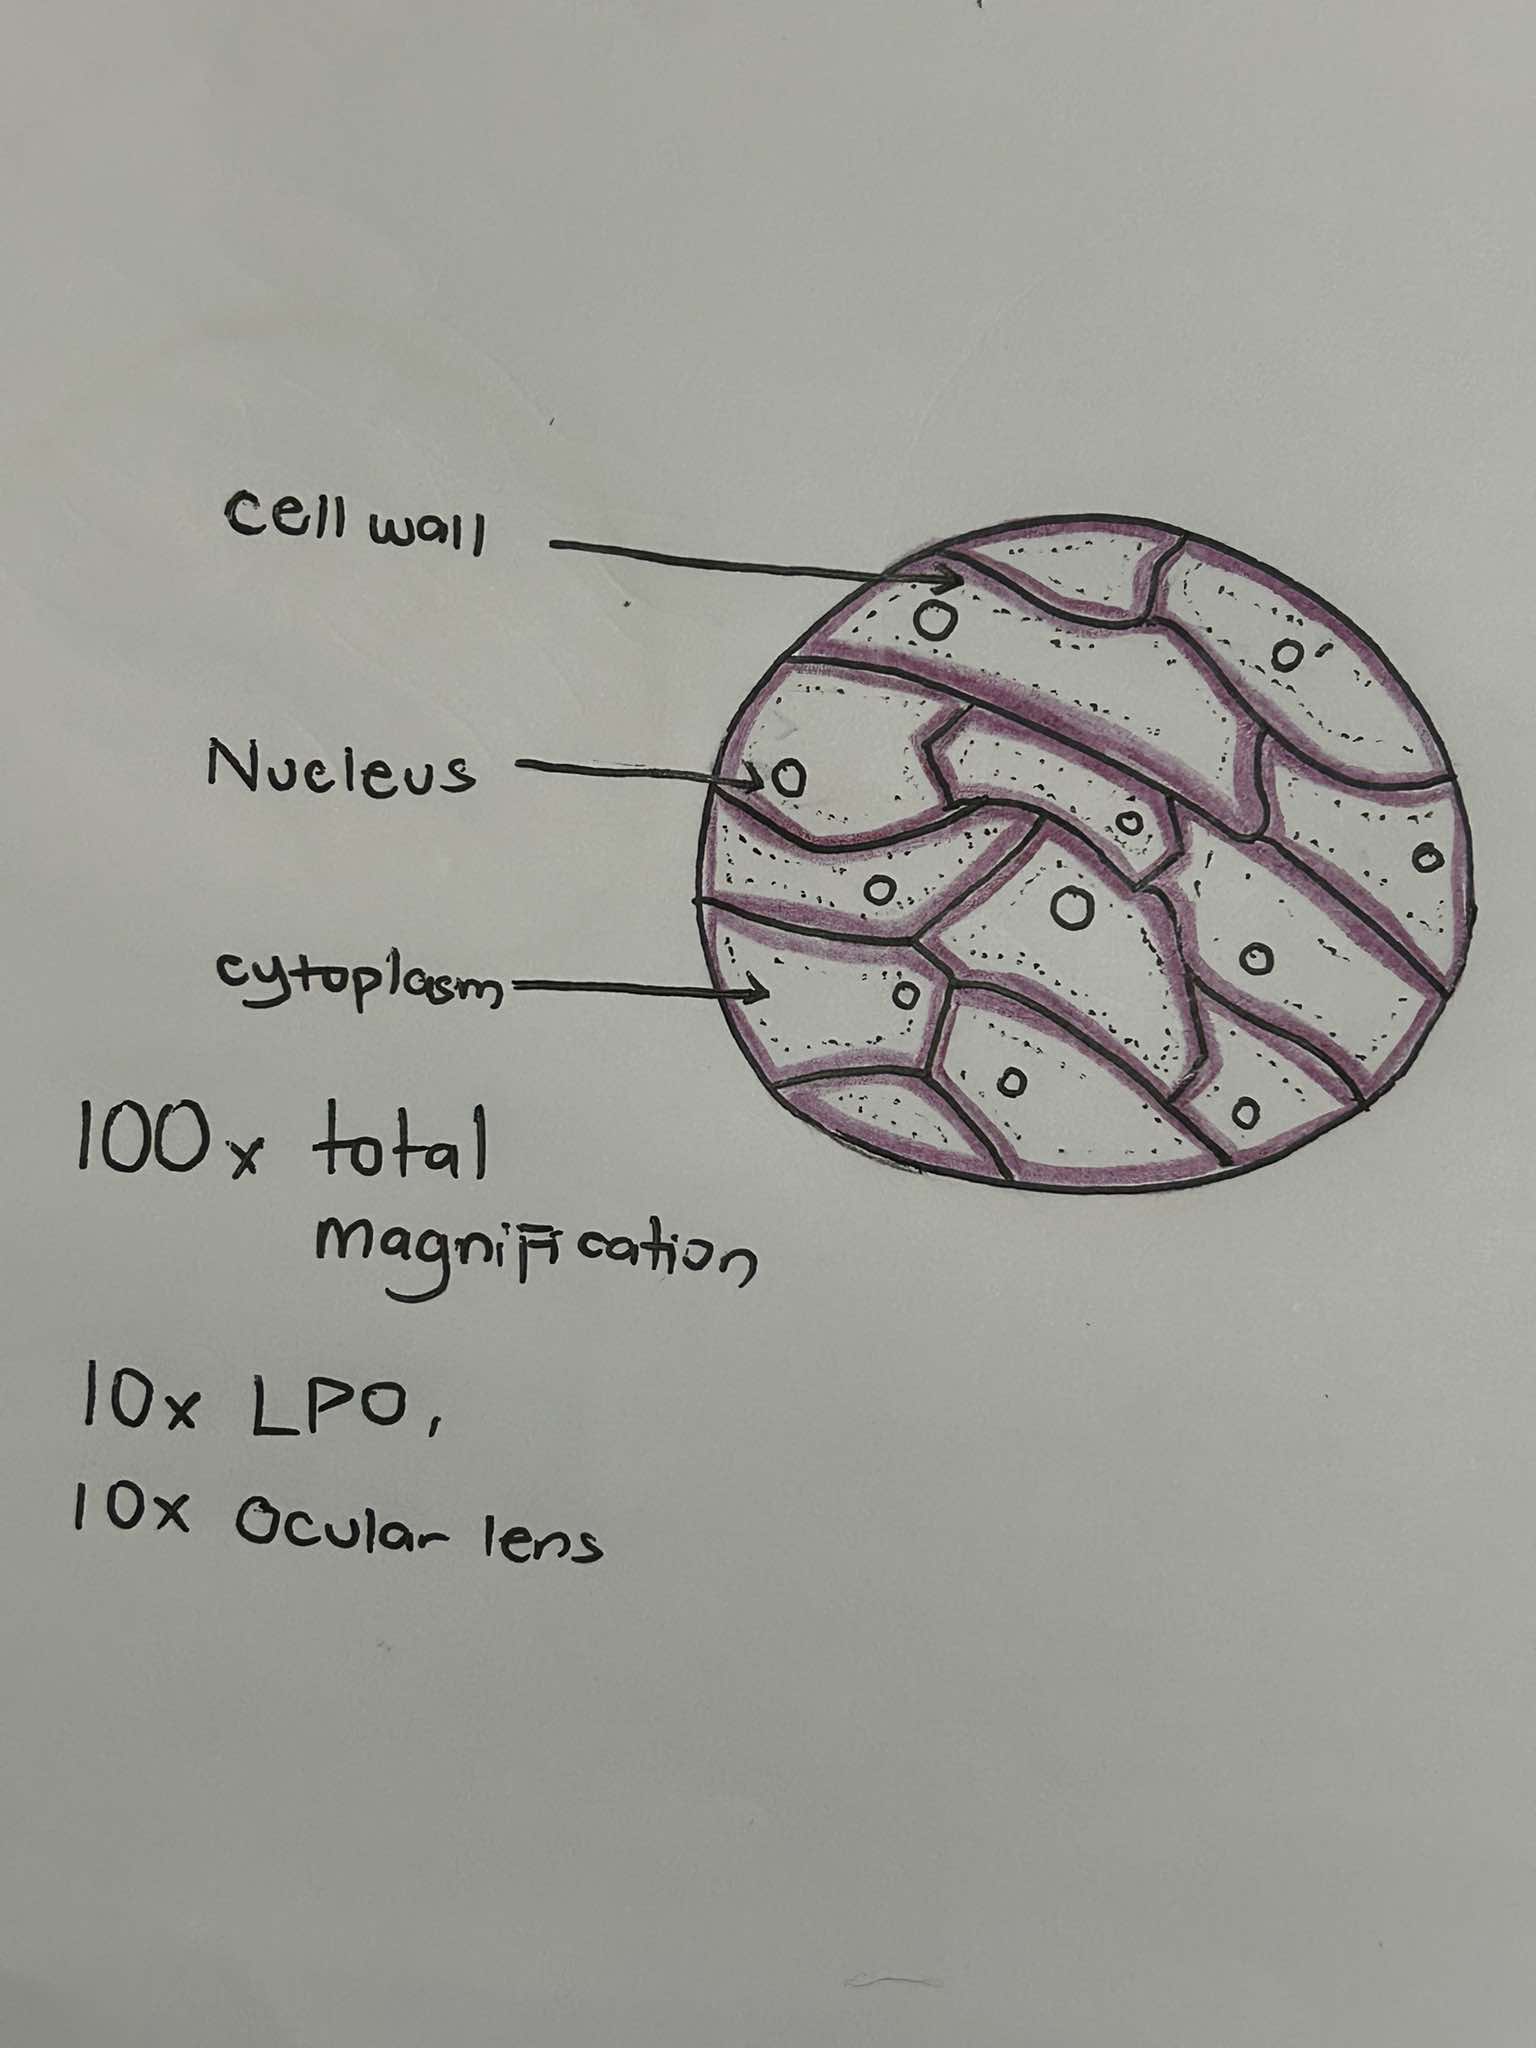 cell wall
Nucleus
cytoplasm
100x total
magnification
10x LPO,
10x Ocular lens